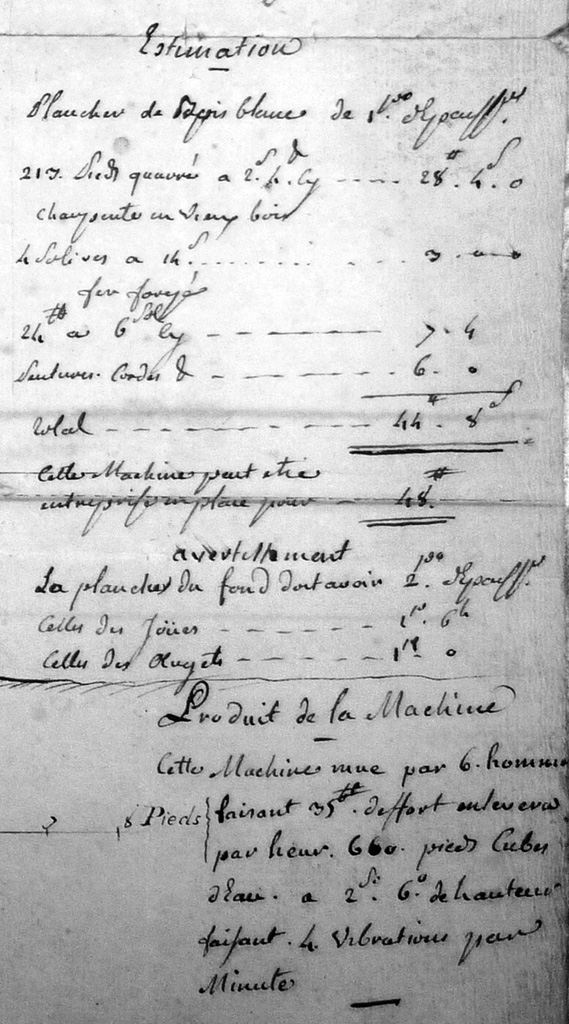 Estimation
Plancher de Bois blanc de 1.po d'Epaiss.r
213. Pieds quarré a 2.s 4.d cy ---- 28.# 4.s 0
charpente en vieux bois
4 Solives a 14.s ........... 3 . 0 . 0
fer forgé
24.# a 6.s cy -------- 7 . 4
Cordes & ------- 6 . 0
total ----------- 44.# 8.s
Cette Machine peut etre
entreprise en place pour - 48.#
avertissement
La plancher du fond doit avoir 2.po d'Epaiss.r
Celles des Joües ------ 1.po 6.li
Celles des Augets ----- 1.po 0
Produit de la Machine
Cette Machine mue par 6. hommes
8 Pieds { faisant 35.# d'effort enlevera
par heur. 660. pieds Cubes
d'Eau. a 2.di 6.o de hauteur
faisant. 4. Vibrations par
Minute